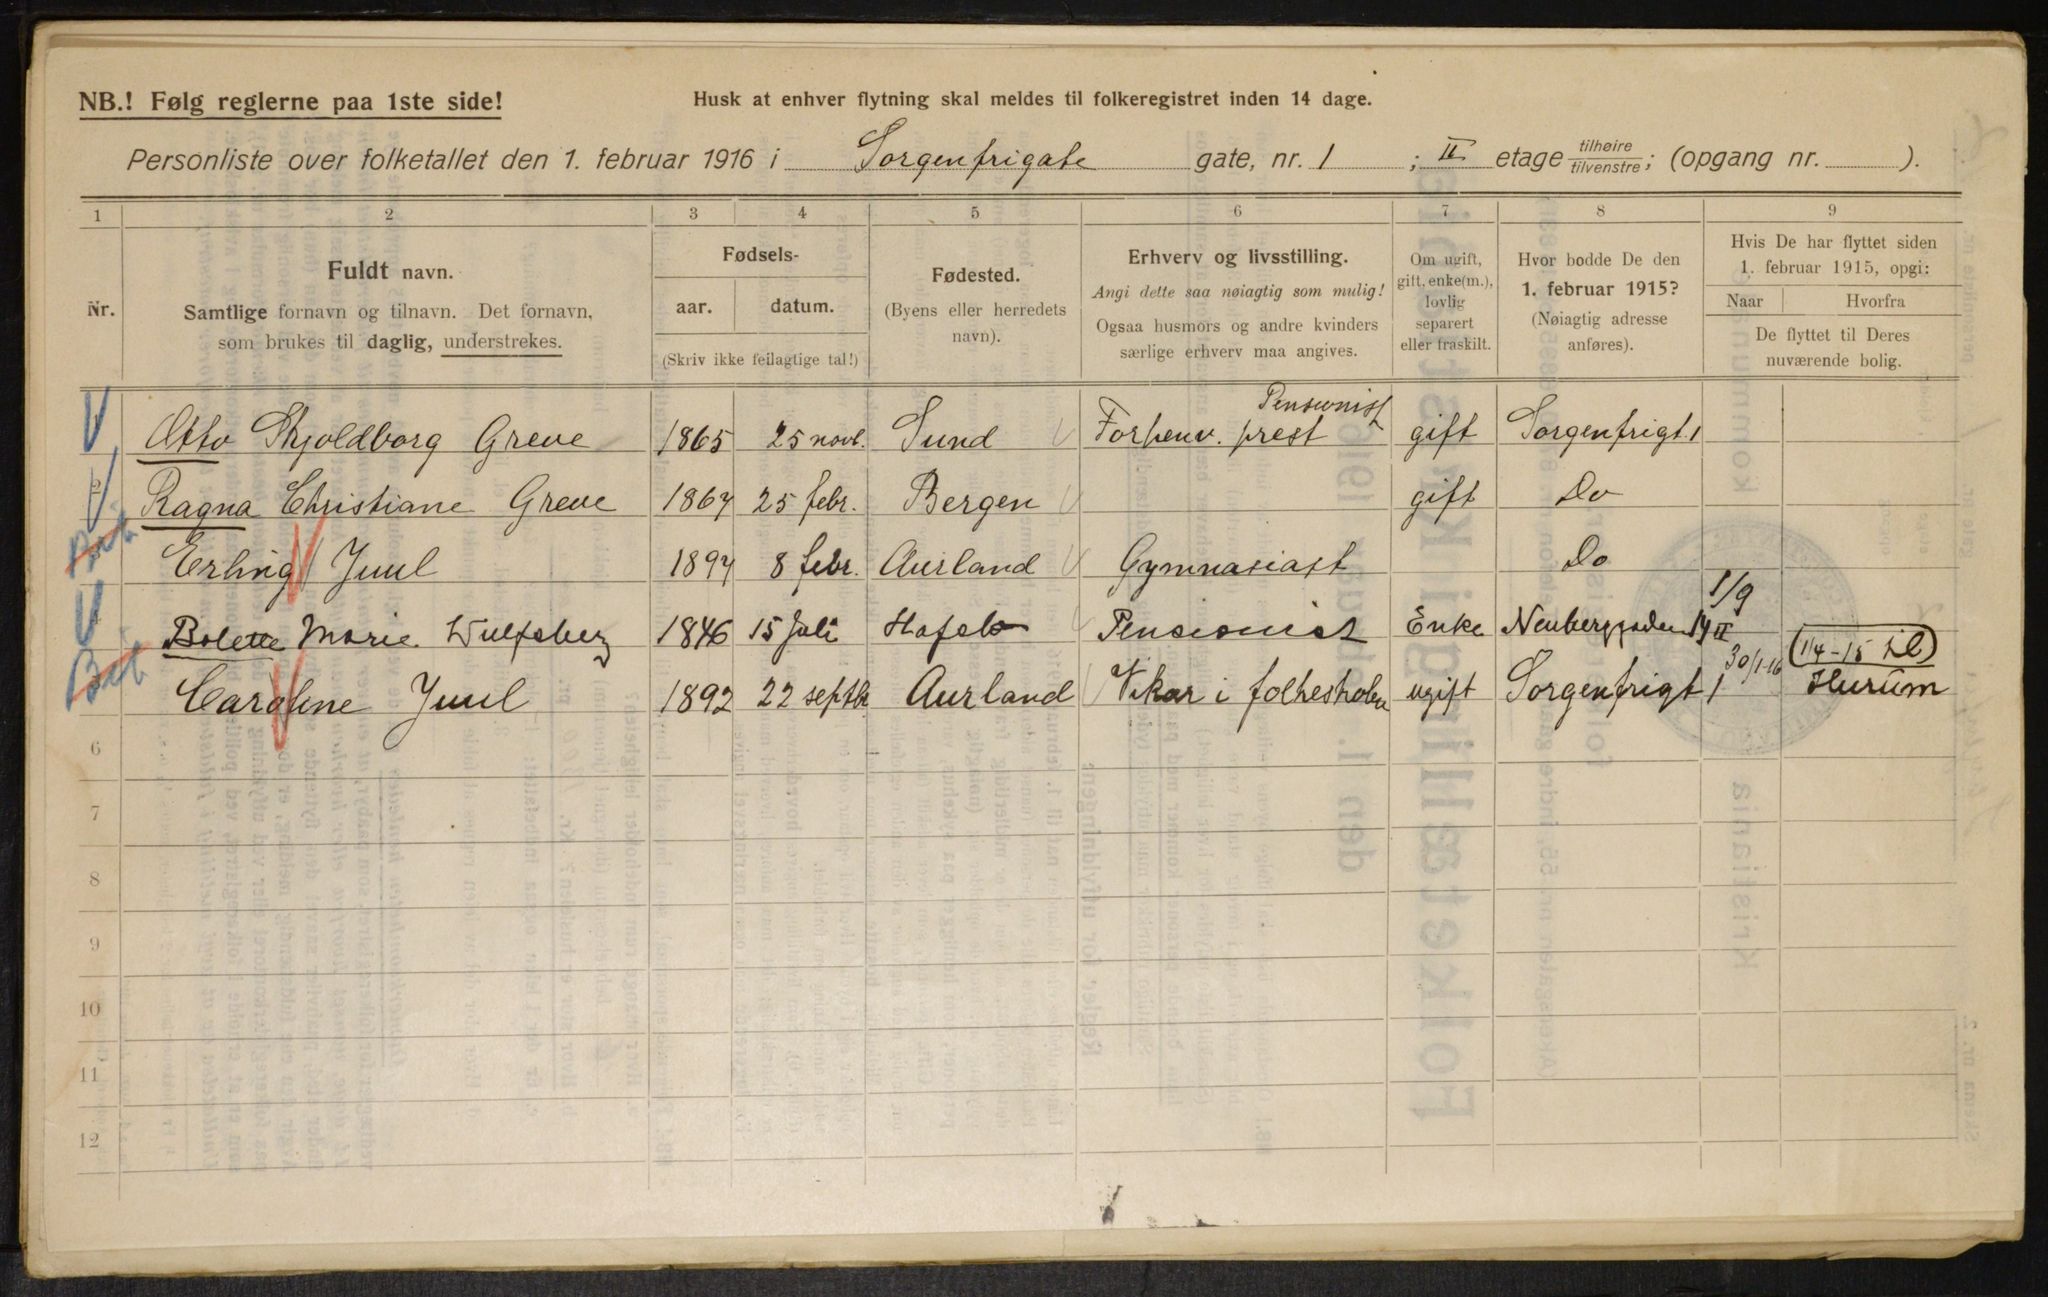 NB.! Følg reglerne paa 1ste side!
Husk at enhver flytning skal meldes til folkeregistret inden 14 dage.
Personliste over folketallet den 1. februar 1916 i Sorgenfrigate gate, nr. 1 ; II etage tilhøire tilvenstre; (opgang nr. ).
1 2 3 4 5 6 7 8 9
Nr.
Fuldt navn.
Samtlige fornavn og tilnavn. Det fornavn,
som brukes til daglig, understrekes.
Fødsels-
aar. datum.
(Skriv ikke feilagtige tal!)
Fødested.
(Byens eller herredets
navn).
Erhverv og livsstilling.
Angi dette saa nøiagtig som mulig!
Ogsaa husmors og andre kvinders
særlige erhverv maa angives.
Om ugift,
gift, enke(m.),
lovlig
separert
eller fraskilt.
Hvor bodde De den
1. februar 1915?
(Nøiagtig adresse
anføres).
Hvis De har flyttet siden
1. februar 1915, opgi:
Naar Hvorfra
De flyttet til Deres
nuværende bolig.
Pensionist
Otto Skjoldborg Greve 1865 25 novb. Sund Forhenv. prest gift Sorgenfrigt. 1
2 Ragna Christiane Greve 1867 25 febr. Bergen gift Do
Erling Juul 1897 8 febr. Aurland Gymnasiast Do
1/9
Bolette Marie Wulfsberg 1846 15 Juli Hafslo Pensionist Enke Neuberggaden 14 II
30/1-16 (1/4-15 til)
Caroline Juul 1892 22 septbr Aurland Vikar i folkeskolen ugift Sorgenfrigt 1 Hurum
6
7
8
9
10
11
12